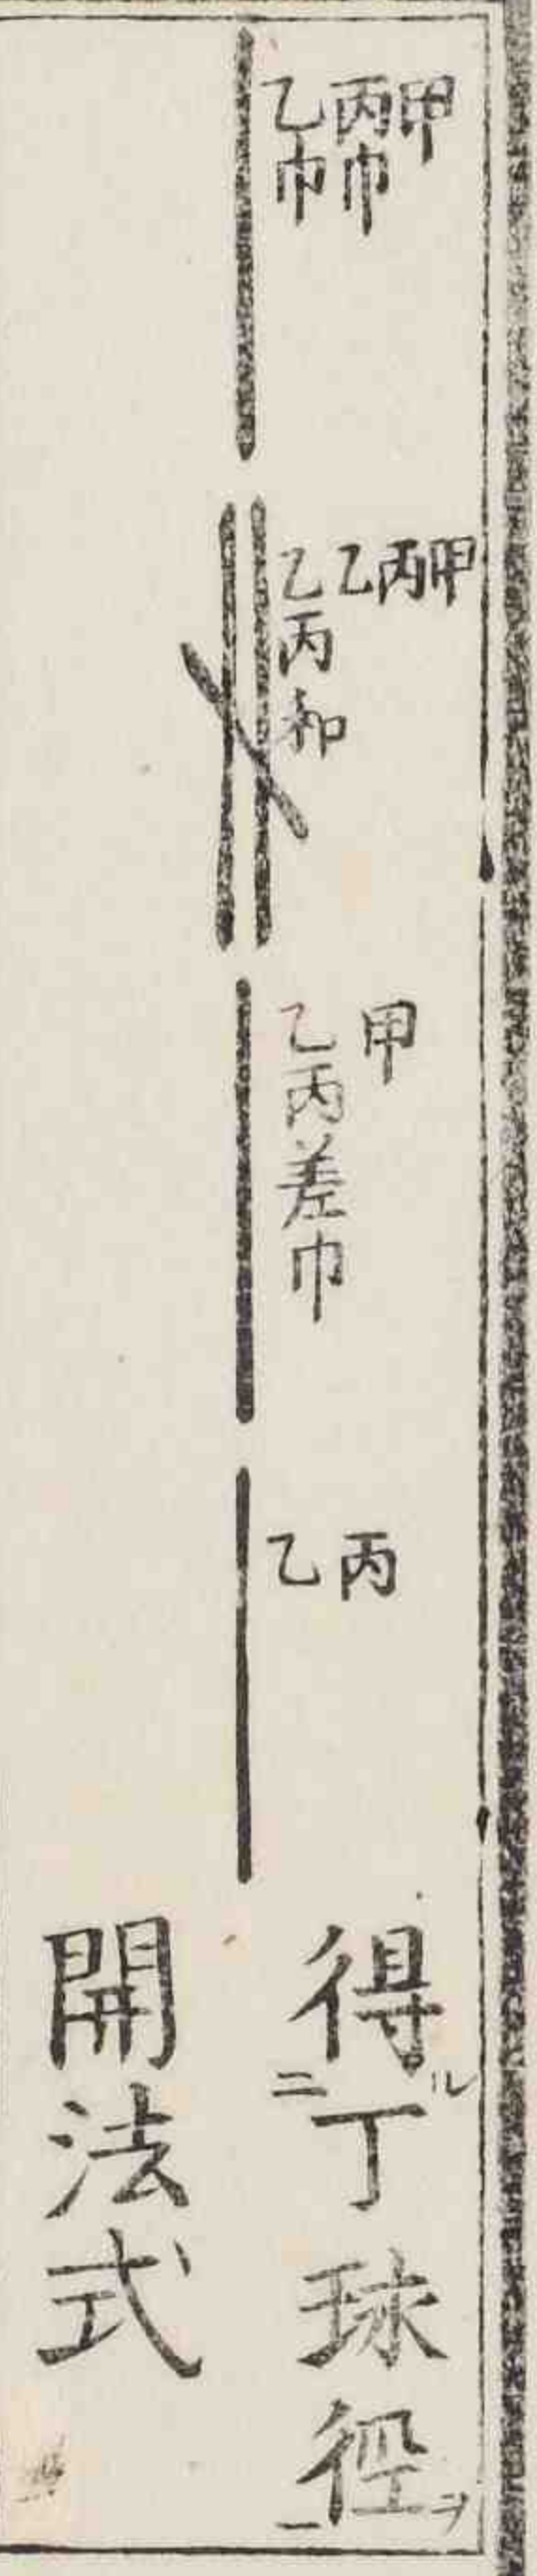 甲
丙巾
乙巾
甲
丙
乙
乙丙和
甲
乙丙差巾
丙
乙
得ル二丁球徑ヲ一
開法式